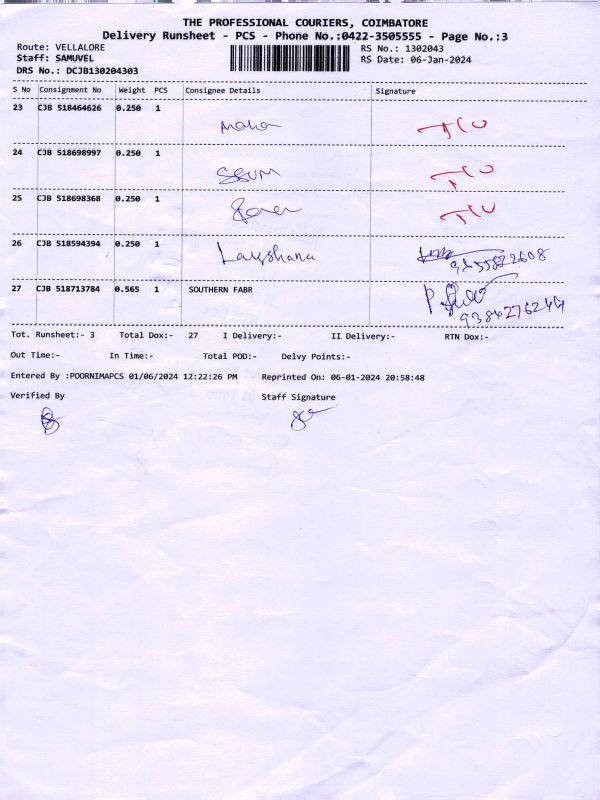 THE PROFESSIONAL COURIERS, COIMBATORE
Delivery Runsheet - PCS - Phone No.:0422-3505555 - Page No.:3
Route: VELLALORE RS No.: 1302043
Staff: SAMUVEL RS Date: 06-Jan-2024
DRS No.: DCJB130204303
S No Consignment No Weight PCS Consignee Details Signature
23 CJB 518464626 0.250 1
Maha
24 CJB 518698997 0.250 1
25 CJB 518698368 0.250 1
26 CJB 518594394 0.250 1
27 CJB 518713784 0.565 1 SOUTHERN FABR
9384276244
Tot. Runsheet:- 3 Total Dox:- 27 I Delivery:- II Delivery:- RTN Dox:-
Out Time:- In Time:- Total POD:- Delvy Points:-
Entered By :POORNIMAPCS 01/06/2024 12:22:26 PM Reprinted On: 06-01-2024 20:58:48
Verified By Staff Signature